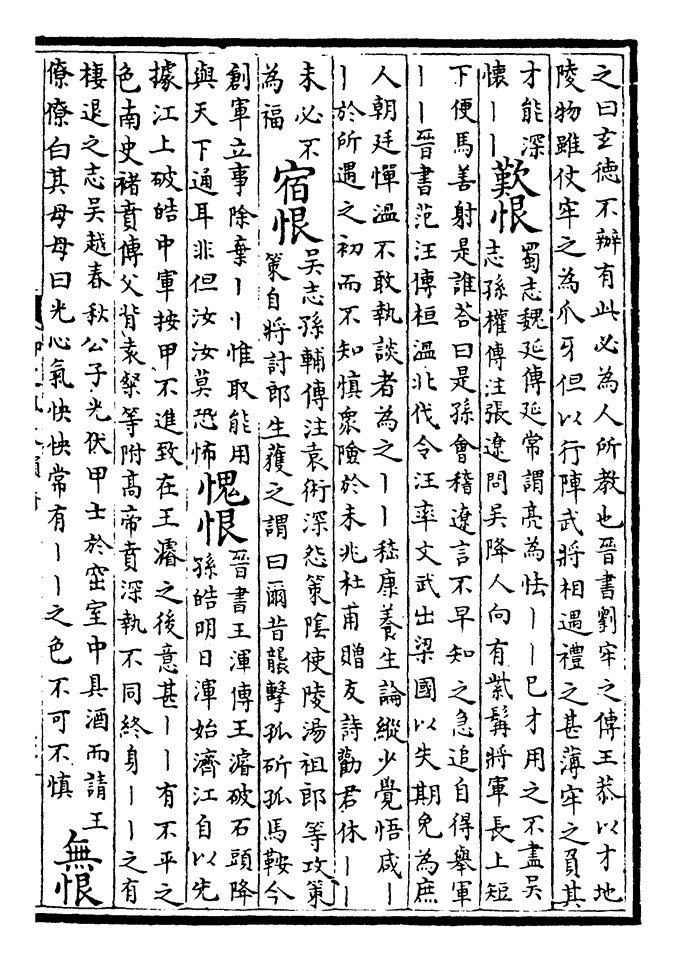 之曰玄德不辦有此必為人所教也晉書劉牢之傳王恭以才地
陵物雖仗牢之為爪牙但以行陣武將相遇禮之甚薄牢之負其
才能深
懷丨丨
歎恨
蜀志魏延傳延常謂亮為怯丨丨已才用之不盡吳
志孫權傳注張遼問吳降人向有紫髯將軍長上短
下便馬善射是誰荅曰是孫會稽遼言不早知之急追自得舉軍
丨丨晉書范汪傳桓溫北伐令汪率文武出梁國以失期免為庶
人朝廷憚溫不敢執談者為之丨丨嵇康養生論縱少覺悟咸丨
丨於所遇之初而不知慎衆險於未兆杜甫贈友詩勸君休丨丨
未必不
為福
宿恨
吳志孫輔傳注袁術深怨策隂使陵湯祖郎等攻策
策自將討郎生獲之謂曰爾昔襲擊孤斫孤馬鞍今
創軍立事除棄丨丨惟取能用
與天下通耳非但汝汝莫恐怖
愧恨
晉書王渾傳王濬破石頭降
孫皓明日渾始濟江自以先
據江上破皓中軍按甲不進致在王濬之後意甚丨丨有不平之
色南史褚賁傳父背袁粲等附高帝賁深執不同終身丨丨之有
棲退之志吳越春秋公子光伏甲士於窋室中具酒而請王
僚僚白其母母曰光心氣怏怏常有丨丨之色不可不慎
無恨